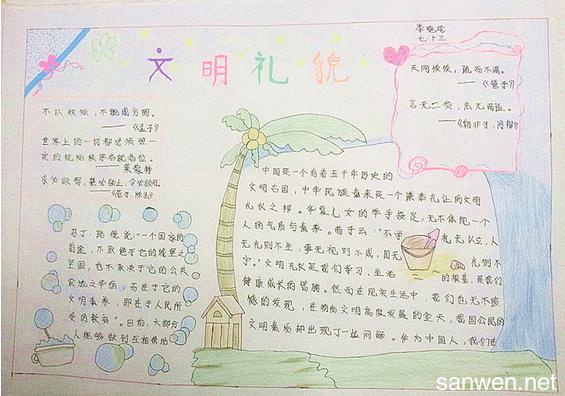 李晓晗
七.十三
文明礼貌
不以规矩，不能成方圆。
——《孟子》
世界上的一切都必须照一
定的规矩秩序各就各位。
——莱蒙特
求必欲得，禁必欲止，令必欲行。
天网恢恢，疏而不漏。
言无二贵，法无两适。
——《韩非子.问辩》
马丁.路德说:“一个国家的
前途，不取决于它的城堡之
坚固，也不取决于它的公共
设施之华丽，而在于它的
文明素养，即在于人民所
受的教育”。目前，大部分
人能够做到互相帮助
中国是一个有着五千年历史的
文明古国，中华民族素来是一个谦恭礼让的文明
礼仪之邦。华夏儿女的举手投足，无不体现一个
人的气质与素养。荀子云:“不学
礼无以立，人
无礼则不生，事无视则不成，国无
礼则不
宁。”文明礼仪是我们学习、生活
的根基，是我们
健康成长的臂膀。然而在现实生活中，我们也无不遗
憾的发现，在物质文明高度发展的今天，我国公民的
文明素质却出现了一些问题。作为中国人，我们也
sanwen.net